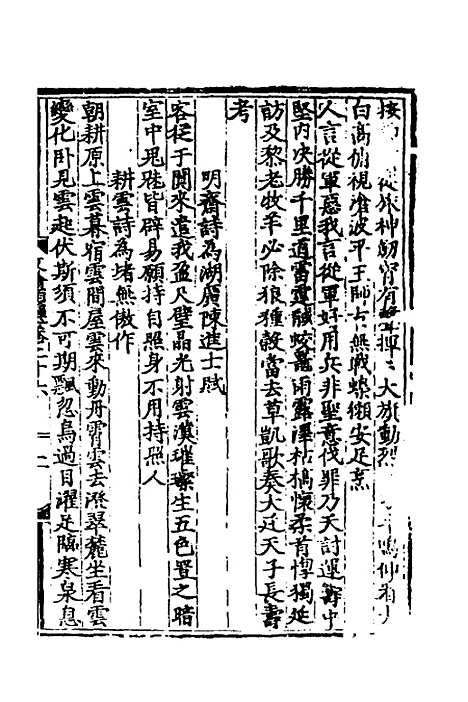 旅神劒宵有聲揮大旗動烈
白高俯視滄波平王師古無戰螻蟻安足烹
人言從軍惡我言從軍好用兵非聖意伐罪乃天討運籌中
堅内决勝千里道雷霆馘蛟鼉雨露澤枯槁懷柔首惸獨延
訪及黎老牧羊必除狼種穀當去草凱歌奏大廷天子長壽
考
明齋詩為湖廣陳進士賦
客從于闐來遺我盈尺璧晶光射雲漢璀璨生五色置之暗
室中鬼魅皆辟易願持自照身不用持照人
耕雲詩為堵無傲作
朝耕原上雲暮宿雲間屋雲來動丹霄雲去潑翠麓坐看雲
變化卧見雲起伏斯須不可期飄忽鳥過目濯足臨寒泉息